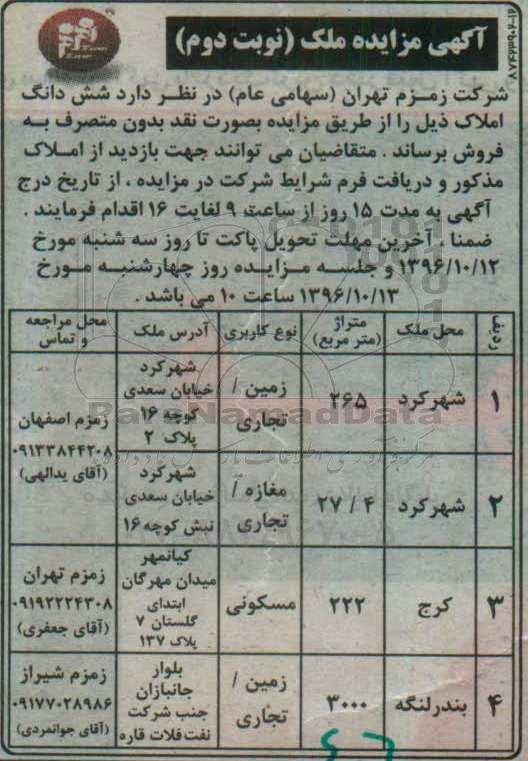 آگهی مزایده ملک (نوبت دوم)
۸۷۴۲۳۹۰۲-۱۵
شرکت زمزم تهران (سهامی عام) در نظر دارد شش دانگ
املاک ذیل را از طریق مزایده بصورت نقد بدون متصرف به
فروش برساند . متقاضیان می توانند جهت بازدید از املاک
مذکور و دریافت فرم شرایط شرکت در مزایده ، از تاریخ درج
آگهی به مدت ۱۵ روز از ساعت ۹ لغایت ۱۶ اقدام فرمایند .
ضمنا ، آخرین مهلت تحویل پاکت تا روز سه شنبه مورخ
۱۳۹۶/۱۰/۱۲ و جلسه مزایده روز چهارشنبه مورخ
۱۳۹۶/۱۰/۱۳ ساعت ۱۰ می باشد .
ردیف محل ملک متراژ (متر مربع) نوع کاربری آدرس ملک محل مراجعه و تماس
۱ شهرکرد ۲۶۵ زمین / تجاری
شهرکرد
خیابان سعدی
کوچه ۱۶
پلاک ۲
زمزم اصفهان
۰۹۱۳۳۸۴۴۲۰۸
(آقای یدالهی)
۲ شهرکرد ۲۷ / ۴ مغازه / تجاری
شهرکرد
خیابان سعدی
نبش کوچه ۱۶
۳ کرج ۲۲۲ مسکونی
کیانمهر
میدان مهرگان
ابتدای
گلستان ۷
پلاک ۱۳۷
زمزم تهران
۰۹۱۹۲۲۲۴۳۰۸
(آقای جعفری)
۴ بندرلنگه ۳۰۰۰ زمین / تجاری
بلوار
جانبازان
جنب شرکت
نفت فلات قاره
زمزم شیراز
۰۹۱۷۷۰۲۸۹۸۶
(آقای جوانمردی)
ParsNamadData